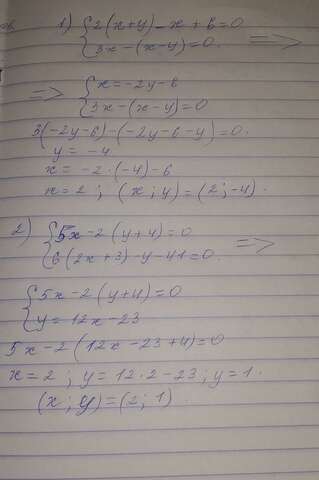 1) { 2(x+y)-x+6=0
3x-(x-y)=0. =>
=> { x=-2y-6
3x-(x-y)=0
3(-2y-6)-(-2y-6-y)=0.
y=-4
x=-2·(-4)-6
x=2; (x;y)=(2;-4).
2) { 5x-2(y+4)=0
6(2x+3)-y-41=0. =>
{ 5x-2(y+4)=0
y=12x-23
5x-2(12x-23+4)=0
x=2; y=12·2-23; y=1.
(x;y)=(2;1)